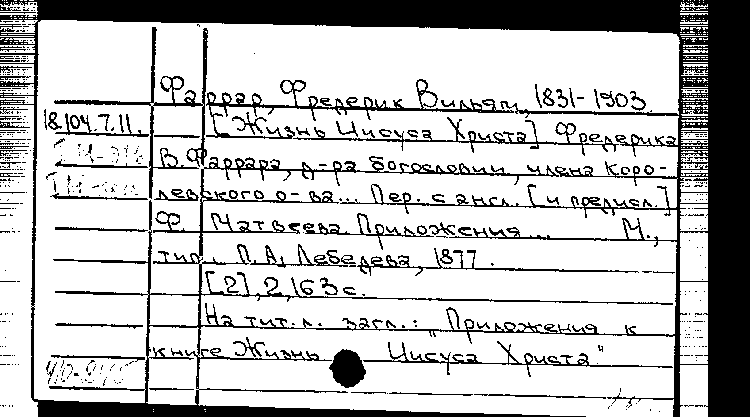 Фаррар, Фредерик Вильям, 1831-1903
18.104.7.11. [Жизнь Иисуса Христа] Фредерика
В. Фаррара, д-ра богословии, члена Коро-
левского о-ва... Пер. с англ. [и предисл.]
Ф. Матвеева. Приложения... М.,
тип. П. А. Лебедева, 1877.
[2], 2, 163 с.
На тит. л. загл.: "Приложения к
книге Жизнь Иисуса Христа"